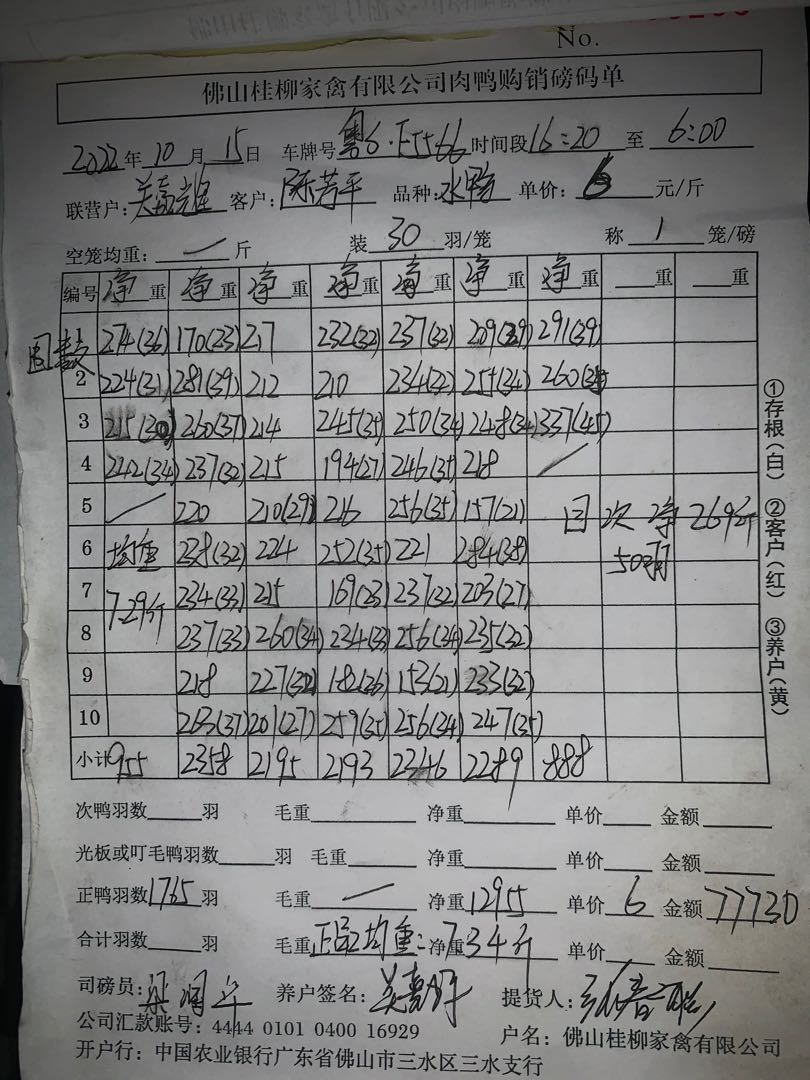 No.
佛山桂柳家禽有限公司肉鸭购销磅码单
2022年10月15日 车牌号粤S·F5566时间段16:20至6:00
联营户: 客户:陈芳平 品种:水鸭 单价:6元/斤
空笼均重:一斤 装30羽/笼 称1笼/磅
编号 净重 净重 净重 净重 净重 净重 净重 重 重
274(36) 170(23) 217 232(32) 237(32) 209(29) 291(39)
2 224(31) 281(39) 212 210 234(32) 254(34) 260(35)
3 215(30) 260(37) 214 245(35) 250(34) 248(34) 337(45)
4 242(34) 237(32) 215 194(27) 246(35) 218 /
5 / 220 210(29) 216 256(35) 157(21) 回次净269斤
6 均重 238(32) 224 252(35) 221 284(38) 50羽
7 7.29斤 234(33) 215 169(23) 237(32) 203(27)
8 237(33) 260(34) 234(33) 256(34) 235(32)
9 218 227(32) 182(26) 153(21) 233(32)
10 263(37) 201(27) 259(35) 256(34) 247(35)
小计 955 2358 2195 2193 2346 2289 888
①存根(白) ②客户(红) ③养户(黄)
次鸭羽数羽 毛重 净重 单价 金额
光板或叮毛鸭羽数羽 毛重 净重 单价 金额
正鸭羽数1765羽 毛重一 净重12955 单价6 金额77730
合计羽数羽 毛重正品均重:净重7.34斤 单价 金额
司磅员: 养户签名: 提货人:
公司汇款账号:4444 0101 0400 16929 户名:佛山桂柳家禽有限公司
开户行:中国农业银行广东省佛山市三水区三水支行